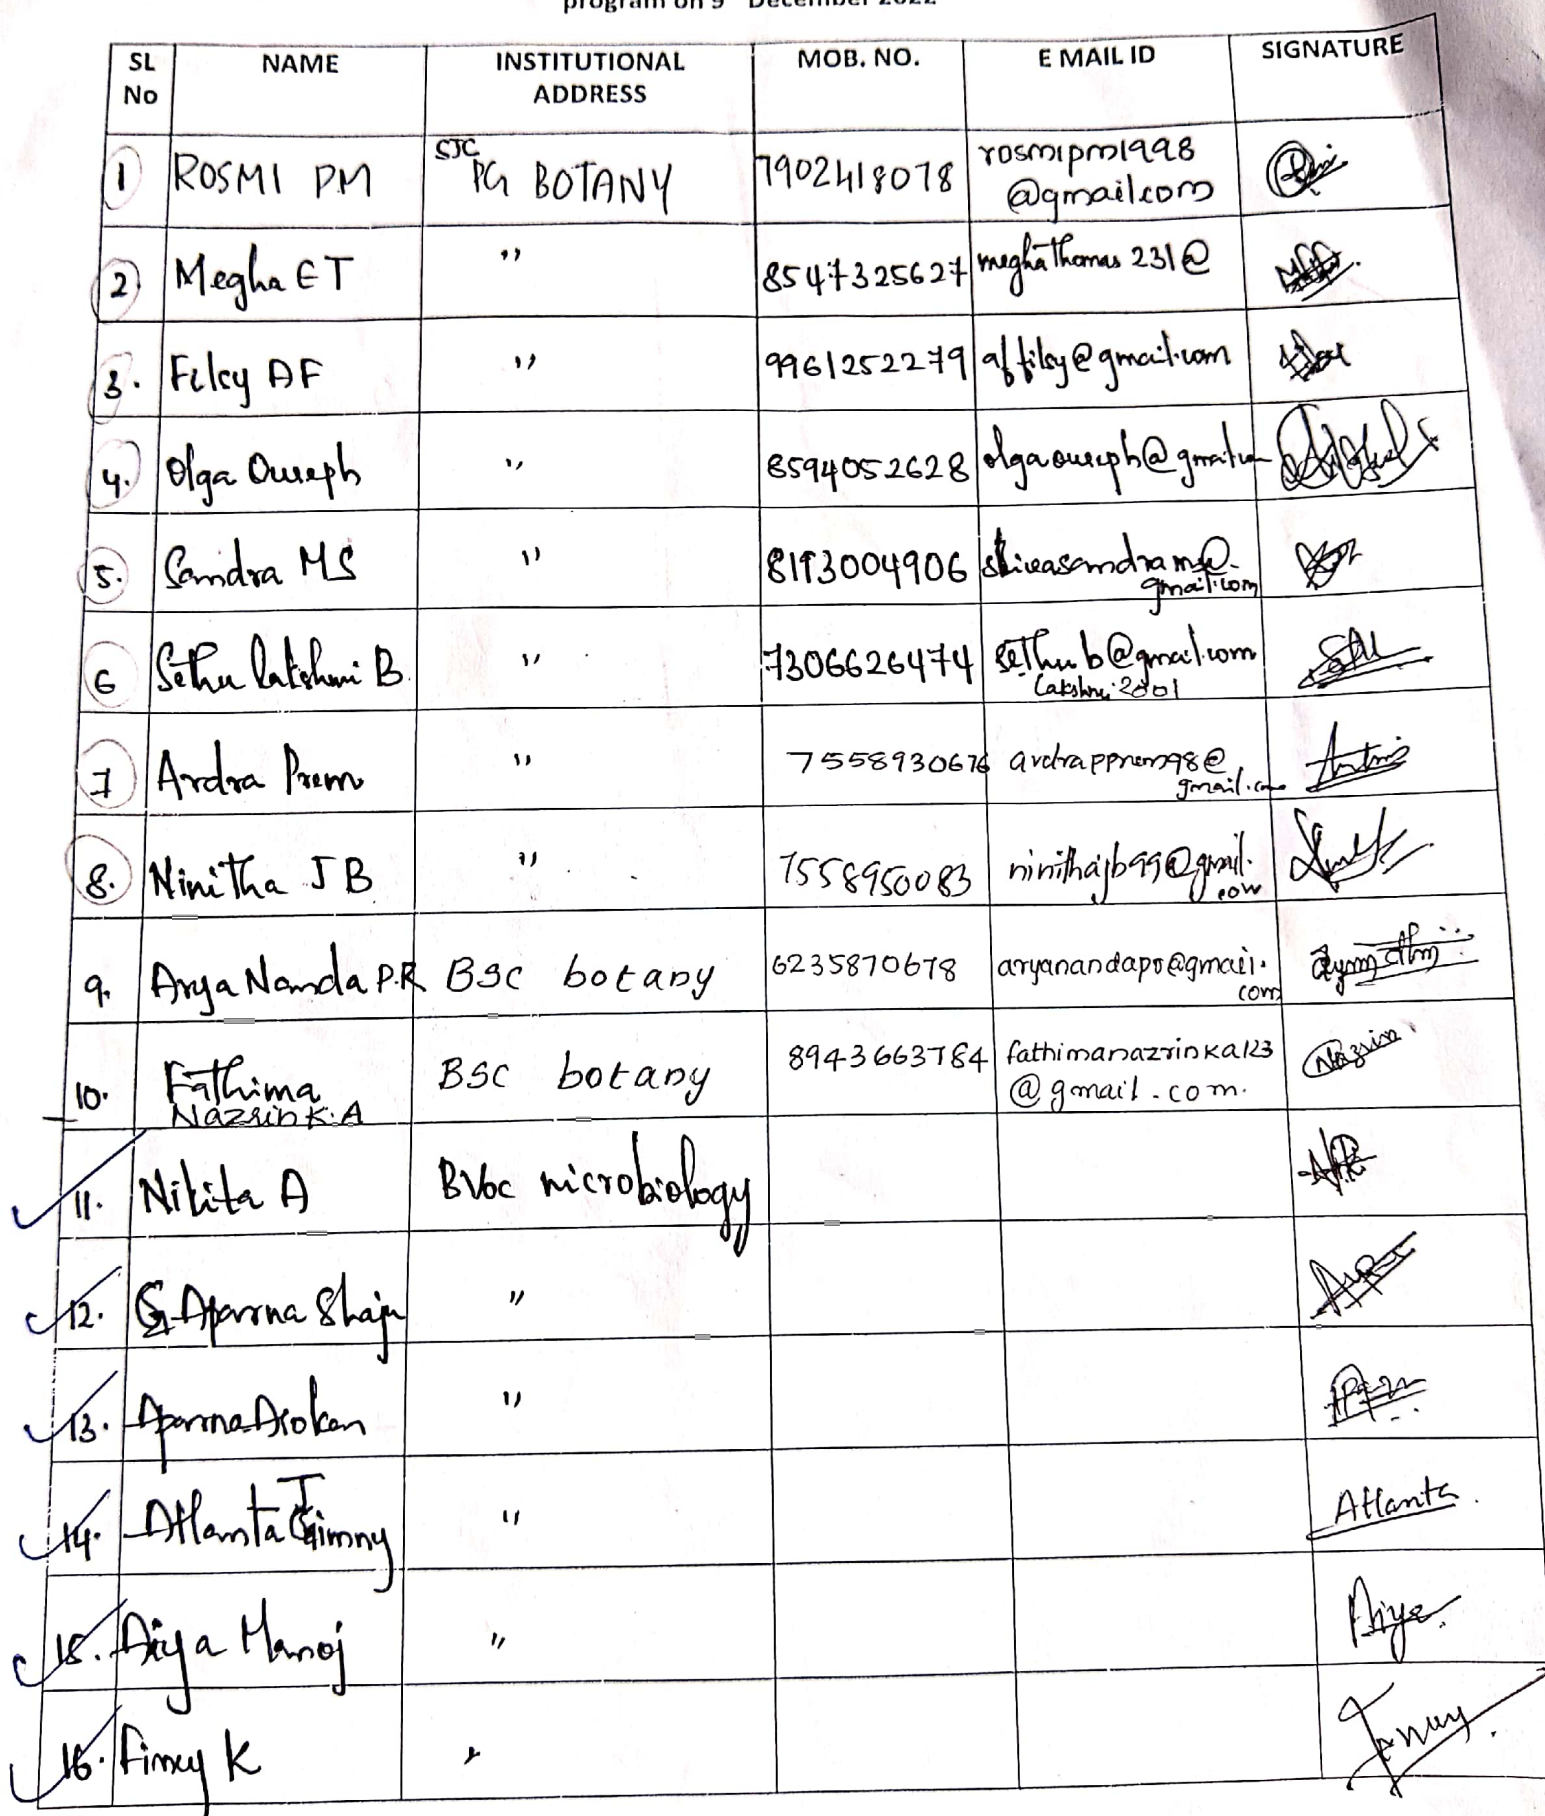 program on 9 December 2022
SL No NAME INSTITUTIONAL ADDRESS MOB. NO. E MAIL ID SIGNATURE
1 ROSMI PM SJC PG BOTANY 7902418078 rosmipm1998 @gmail.com
2) Megha ET " 8547325627 meghathomas 231@
3. Filcy AF " 9961252279 affilcy@gmail.com
4. Olga Ouseph " 8594052628 olgaouseph@gmail.com
5. Sandra MS " 8113004906 shivasandrams@ gmail.com
6 Sethu lakshmi B " 7306626474 sethu b@gmail.com Lakshmi 2001
7 Ardra Prem " 7558930676 ardrapprem98@ gmail.com
8. Ninitha J B " 7558950083 ninithajb99@gmail. com
9. Arya Nanda P.R BSC botany 6235870678 aryanandapr@gmail. com
10. Fathima Nazrin K.A BSC botany 8943663784 fathimanazrinka123 @gmail.com. Nazrin
11. Nikita A BVoc microbiology
12. Aparna Shaju "
13. Aparna Asokan "
14. Atlanta Jimmy " Atlanta.
15. Aiya Manoj " Aiya.
16. Fimcy K "